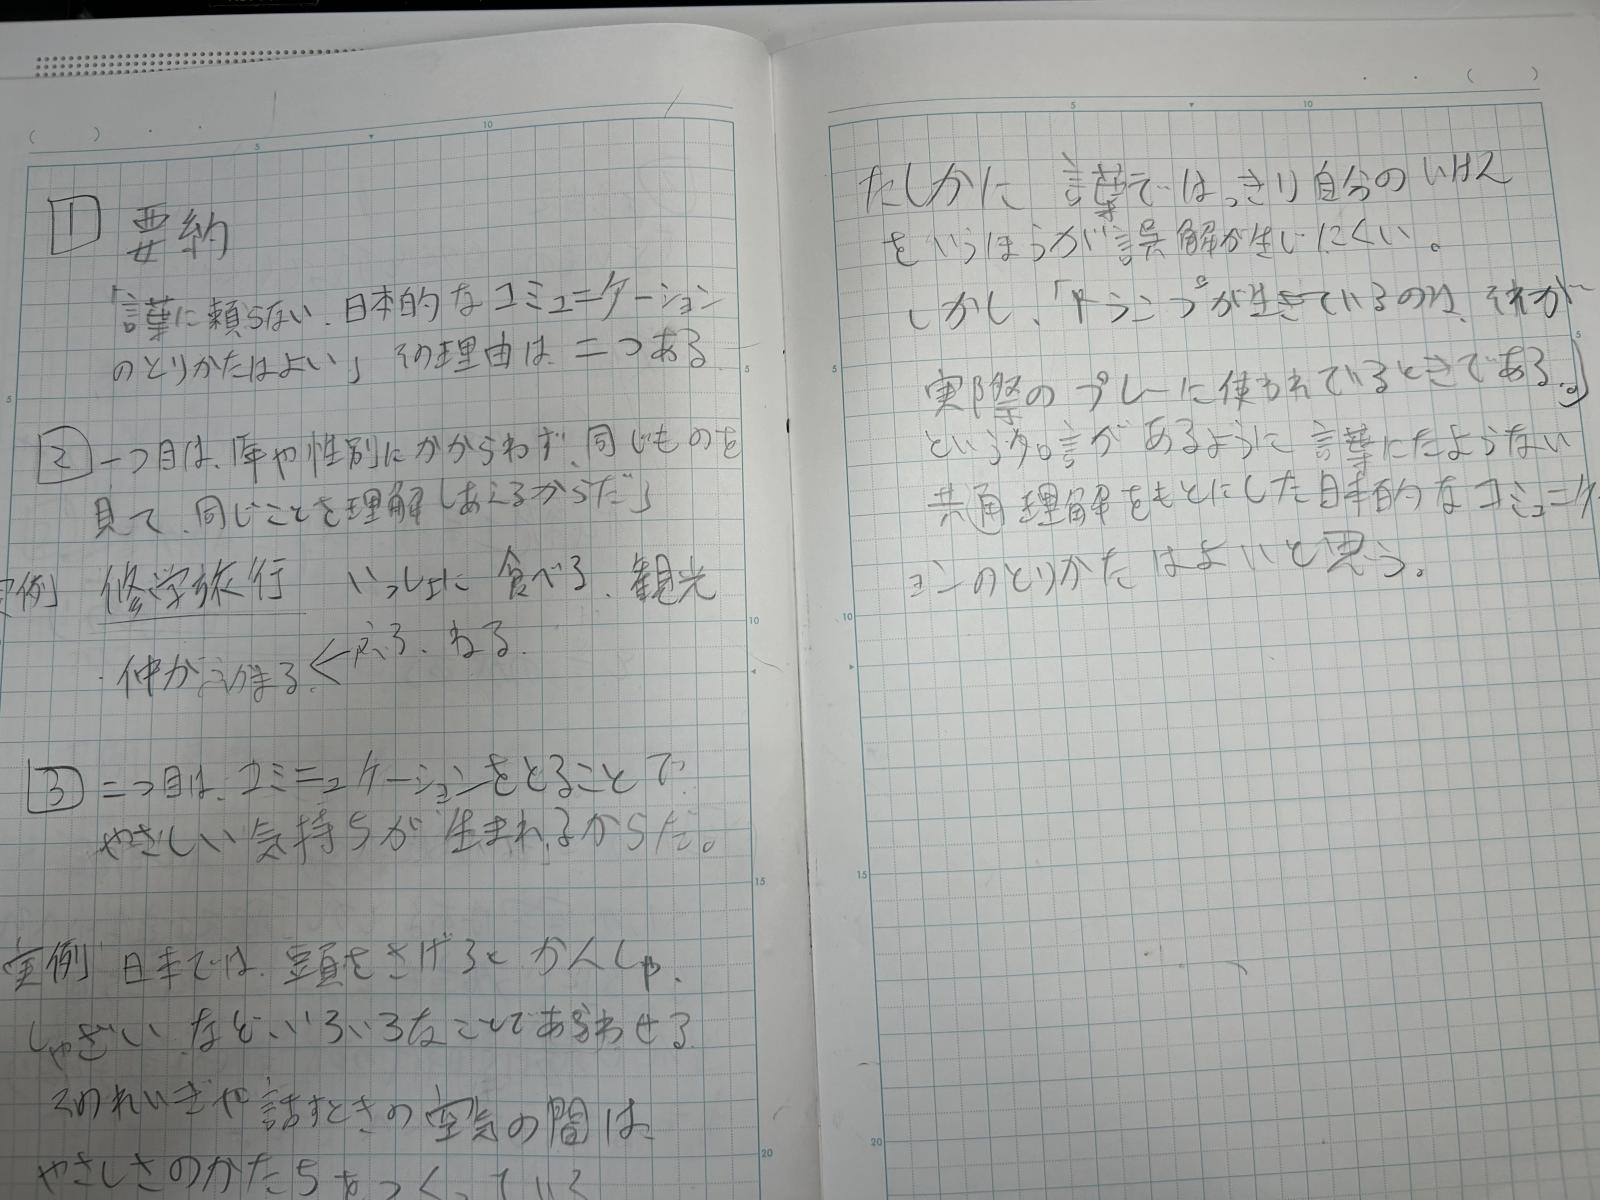 1 要約
「言葉に頼らない、日本的なコミュニケーション
のとりかたはよい」その理由は二つある
2 一つ目は、年や性別にかからわず、同じものを
見て、同じことを理解しあえるからだ」
実例 修学旅行 いっしょに食べる、観光
仲が深まる。<ふろ、ねる。
3 二つ目は、コミニュケーションをとることで
やさしい気持ちが生まれるからだ。
実例 日本では、頭をさげるとかんしゃ、
しゃざいなど、いろいろなことであらわせる
そのれいぎや話すときの空気の間は
やさしさのかたちをつくっている
たしかに 言葉ではっきり自分のいけん
をいうほうが誤解が生じにくい。
しかし、「トランプが生きているのは、それが
実際のプレーに使われているときである。」
という名言があるように言葉にたようない
共通理解をもとにした日本的なコミュニケ
ションのとりかたはよいと思う。
5
10
5
10
5
10
15
20
5
10
15
20
5